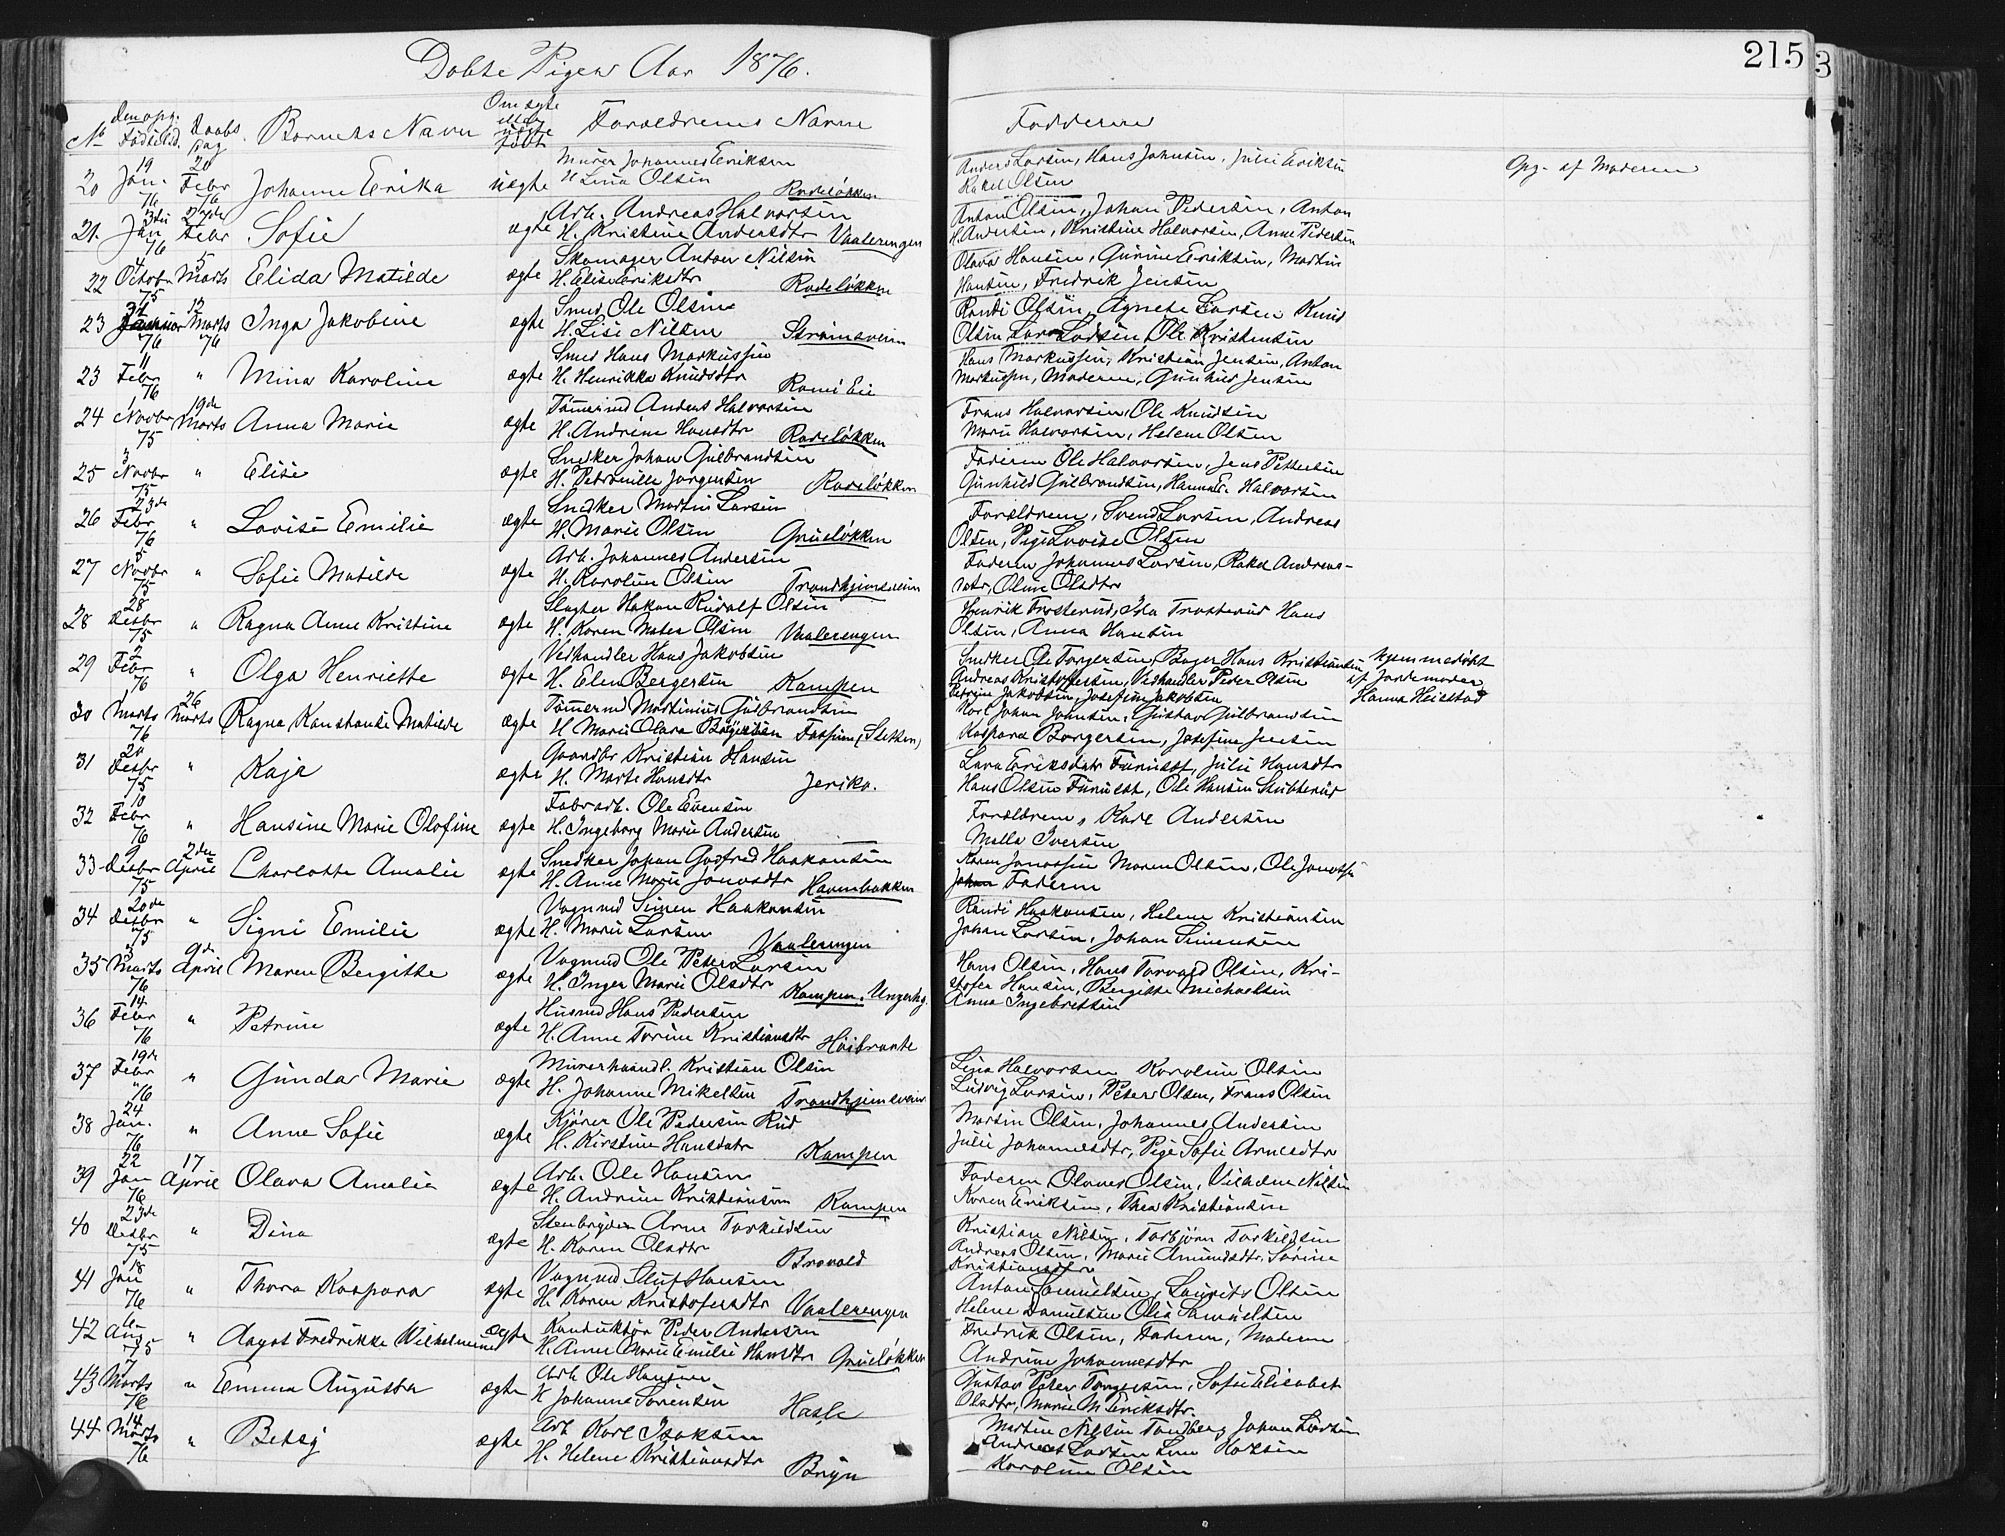 Døbte Piger Aar 1876.
215
No
Den opg. Fødselsd.
Daabs Dag
Barnets Navn
Om ægte eller uægte født
Forældrenes Navne
Fadderne
20 19 Jan. 76 20 Febr 76 Johanne Erika uægte Murer Johannes Eriksen
Lina Olsen Rodeløkken
Anders Larsen, Hans Johnsen, Julie Eriksen
Rakel Olsen
Opg. af Moderen
21. 3die Jan 76 27de Febr Sofie ægte Arb. Andreas Halvorsen
H. Kristine Andersdtr Vaalerengen
Anton Olsen, Johan Pedersen, Anton
H. Andersen, Kristine Halvorsen, Anne Pedersen
22 4 Octobr 75 5 Marts Elida Matilde ægte Skomager Anton Nilsen
H. Elise Eriksdtr Rodeløkken
Olava Hansen, Gurine Eriksen, Martin
Hansen, Fredrik Jensen
23 31 Januar 76 12 Marts 76 Inga Jakobine ægte Smed Ole Olsen
H. Lise Nilsen Strømsveien
Randi Olsen, Agnete Larsen Knud
Olsen Lars Larsen Ole Kristensen
23 11 Febr 76 " Mina Karoline ægte Smed Hans Markussen
H. Henrikke Knudsdtr Eie
Hans Markussen, Kristian Jensen, Anton
Markussen, Moderen, Gunhild Jensen
24 1 Novbr 75 19de Marts Anna Marie ægte Tømermd Anders Halvorsen
H. Andrine Hansdtr Rodeløkken
Frans Halvorsen, Ole Knudsen
Marie Halvorsen, Helene Olsen
25 3 Novbr 75 " Elise ægte Snedker Johan Gulbrandsen
H. Petronille Jørgensen Rodeløkken
Faderen Ole Halvorsen, Jens Pettersen
Gunhild Gulbrandsen, Hanna E. Halvorsen
26 23de Febr 76 " Lovise Emilie ægte Snedker Martin Larsen
H. Marie Olsen Grueløkken
Forældrene, Svend Larsen, Andreas
Olsen, Pige Lovise Olsen
27 5 Novbr 75 " Sofie Matilde ægte Arb. Johannes Andersen
H. Karoline Olsen Trondhjemsveien
Faderen Johannes Larsen, Rakel Andreas-
datr, Oline Olsdtr
28 28 Desbr 75 " Ragna Anne Kristine ægte Slagter Hakon Rudolf Olsen
H. Karen Mathea Olsen Vaalerengen
Henrik Trosterud, Ida Trosterud Hans
Olsen, Anna Hansen
29 2 Febr 76 " Olga Henriette ægte Vedhandler Hans Jakobsen
H. Elen Bergersen Kampen
Snedker Ole Torgersen, Bager Hans Kristiansen
Andreas Kristoffersen, Vedhandler Peder Olsen
Petrine Jakobsen, Josefine Jakobsen
Hjemmedøbt
af Jordemoder
Hanna Heistad
30 1 Marts 76 26 Marts Ragna Konstanse Matilde ægte Tømermd Martinius Gulbrandsen
H. Marie Olava Børgersen Fossum (Sletten)
Karl Johan Johnsen, Gustav Gulbrandsen
Kaspara Børgersen, Josefine Jensen
31 20 Desbr 75 " Kaja ægte Gaardbr Kristian Hansen
H. Marte Hansdtr Jeriko.
Lava Eriksdatr Furuset, Julie Hansdtr
Hans Olsen Furuset, Ole Hansen Stubberud
32 10 Febr 76 " Hansine Marie Olofine ægte Fabrarb. Ole Evensen
H. Ingeborg Marie Andersen
Forældrene, Karl Andersen
Malla Iversen
33 9 Desbr 75 2den April Charlotte Amalie ægte Snedker Johan Godfred Haakonsen
H. Anne Marie Jonasdtr Havnebakken
Karen Jonassen Maren Olsen, Ole Jonassen
Johan Faderen
34 20de Desbr 75 " Signi Emilie ægte Vognmd Simen Haakonsen
H. Marie Larsen Vaalerengen
Randi Haakonsen, Helene Kristiansen
Johan Larsen, Johan Simensen
35 3 Marts 76 9de April Maren Bergitte ægte Vognmd Ole Peter Larsen
H. Inger Marie Olsdtr Kampen,
Hans Olsen, Hans Torvald Olsen, Kri-
stofer Hansen, Bergitte Michaelsen
Anna Ingebretsen
36 14 Febr 76 " Petrine ægte Husmd Hans Pedersen
H. Anne Torine Kristiansdtr Høibraate
37 19de Febr 76 " Gunda Marie ægte Murerhaandl. Kristian Olsen
H. Johanne Mikelsen Trondhjemsveien
Lina Halvorsen Karoline Olsen
Ludvig Larsen, Peter Olsen, Frans Olsen
38 24 Jan. 76 " Anne Sofie ægte Kjører Ole Pedersen Rud
H. Kirstine Hansdatr Kampen
Martin Olsen, Johannes Andersen
Julie Johannesdtr, Pige Sofie Arnesdtr
39 22 Jan 76 17 April Olava Amalie ægte Arb. Ole Hansen
H. Andrine Kristiansen Kampen
Faderen Olaves Olsen, Vilhelm Nilsen
Karen Eriksen, Thea Kristiansen
40 23de Desbr 75 " Dina ægte Stenbryder Arne Torkildsen
H. Karen Olsdtr Brovold
Kristian Nilsen, Torbjørn Torkildsen
Andreas Olsen, Marie Amundsdtr, Sørine
Kristiansdtr
41 18 Jan 76 " Thora Kaspara ægte Vognmd Oluf Hansen
H. Karen Kristofersdtr Vaalerengen
Anton Samuelsen, Laurits Olsen
Helene Danielsen Olia Samuelsen
42 6 Aug 75 " Aagot Fredrikke Wilhelmine ægte Konduktør Peder Andersen
H. Anne Marie Emilie Hansdtr Grueløkken
Fredrik Olsen, Faderen, Moderen
Andrine Johannesdtr
43 7 Marts 76 " Emma Augusta ægte Arb. Ole Hansen
H Johanne Sørensen Hasle
Gustav Peter Torgersen, Sofie Elisabet
Olsdtr, Marie M. Eriksdtr
44 14 Marts 76 " Betsy ægte Arb Karl Isaksen
H. Helene Kristiansdtr Bryn
Martin Nilsen Tandberg Johan Larsen
Andreas Larsen Lina Halsen
Karoline Olsen